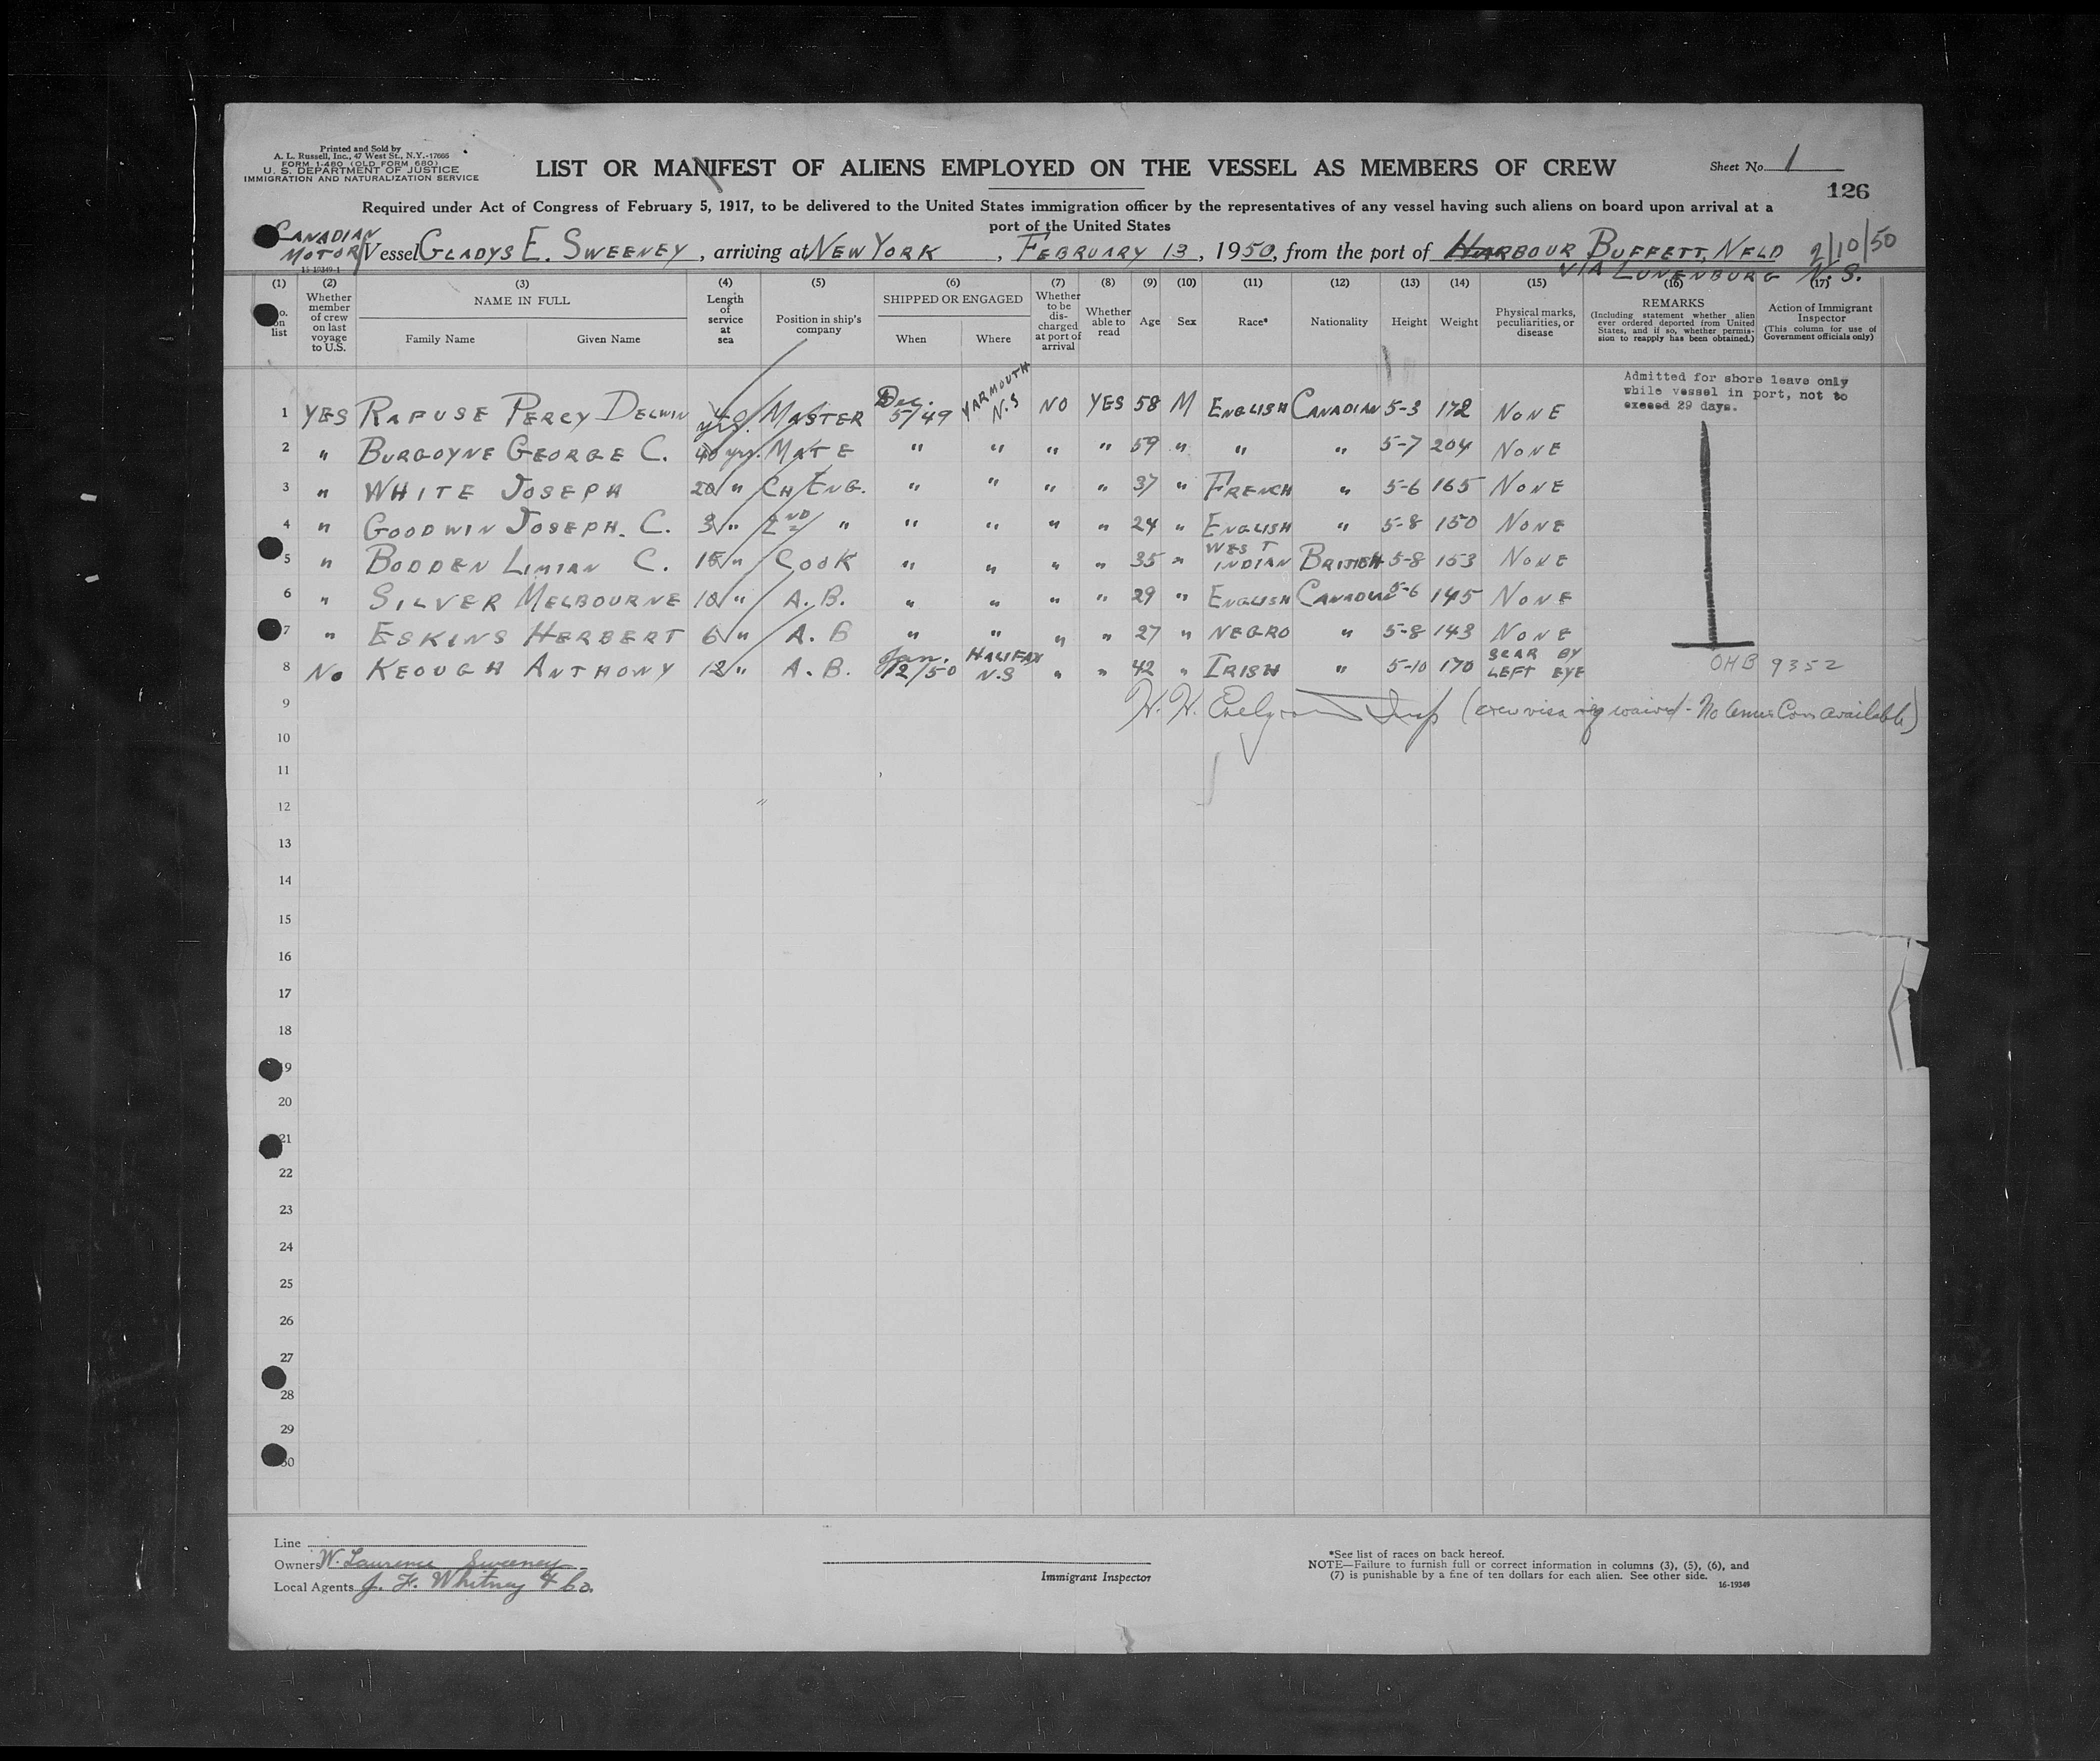 Printed and Sold by
A. L. Russell, Inc., 47 West St., N.Y.-17666
FORM I-480 (OLD FORM 680)
U. S. DEPARTMENT OF JUSTICE
IMMIGRATION AND NATURALIZATION SERVICE
LIST OR MANIFEST OF ALIENS EMPLOYED ON THE VESSEL AS MEMBERS OF CREW
Sheet No. 1
126
Required under Act of Congress of February 5, 1917, to be delivered to the United States immigration officer by the representatives of any vessel having such aliens on board upon arrival at a
port of the United States
CANADIAN
MOTOR Vessel GLADYS E. SWEENEY, arriving at NEW YORK, FEBRUARY 13, 1950, from the port of HARBOUR BUFFETT, NFLD 2/10/50
VIA LUNENBURG N.S.
16-19349-1
(1) (2) (3) (4) (5) (6) (7) (8) (9) (10) (11) (12) (13) (14) (15) (16) (17)
No. on list
Whether member of crew on last voyage to U.S.
NAME IN FULL
Family Name Given Name
Length of service at sea
Position in ship's company
SHIPPED OR ENGAGED
When Where
Whether to be discharged at port of arrival
Whether able to read
Age
Sex
Race*
Nationality
Height
Weight
Physical marks, peculiarities, or disease
REMARKS
(Including statement whether alien ever ordered deported from United States, and if so, whether permission to reapply has been obtained.)
Action of Immigrant Inspector
(This column for use of Government officials only)
Admitted for shore leave only
while vessel in port, not to
exceed 29 days.
1 YES RAFUSE PERCY DELWIN 40 yrs. MASTER Dec. 5/49 YARMOUTH N.S NO YES 58 M ENGLISH CANADIAN 5-3 172 NONE
2 " BURGOYNE GEORGE C. 40 yrs. MATE " " " " 59 " " " 5-7 204 NONE
3 " WHITE JOSEPH 20 " CH/ENG. " " " " 37 " FRENCH " 5-6 165 NONE
4 " GOODWIN JOSEPH. C. 3 " 2ND " " " " " 24 " ENGLISH " 5-8 150 NONE
5 " BODDEN LIMIAN C. 15 " COOK " " " " 35 " WEST INDIAN BRITISH 5-8 153 NONE
6 " SILVER MELBOURNE 10 " A.B. " " " " 29 " ENGLISH CANADIAN 5-6 145 NONE
7 " ESKINS HERBERT 6 " A.B " " " " 27 " NEGRO " 5-8 143 NONE
8 No KEOUGH ANTHONY 12 " A.B. Jan. 12/50 HALIFAX N.S " " 42 " IRISH " 5-10 170 SCAR BY LEFT EYE OHB 9352
9 H. H. Insp (crew visa req waived - No Amer Cons available)
10
11
12
13
14
15
16
17
18
19
20
21
22
23
24
25
26
27
28
29
30
Line
Owners W. Laurence Sweeney
Local Agents J. F. Whitney & Co.
Immigrant Inspector
*See list of races on back hereof.
NOTE—Failure to furnish full or correct information in columns (3), (5), (6), and
(7) is punishable by a fine of ten dollars for each alien. See other side.
16-19349